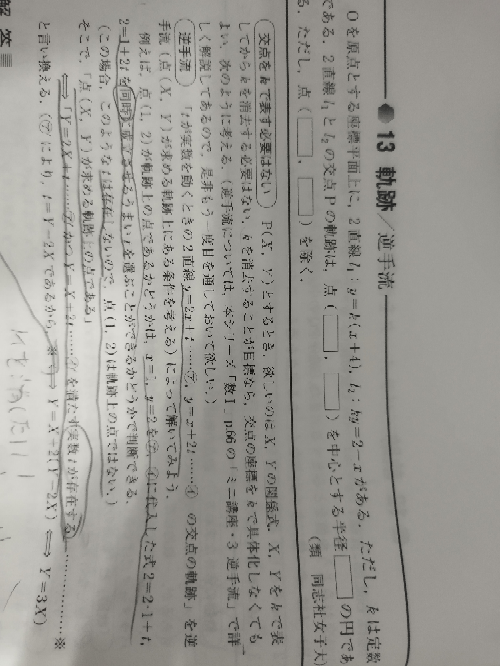 13 軌跡／逆手流
Oを原点とする座標平面上に，2直線l₁：y=k(x+4)，l₂：ky=2-xがある．ただし，kは定数
である．2直線l₁とl₂の交点Pの軌跡は，点(□，□)を中心とする半径□の円であ
る．ただし，点(□，□)を除く．
(類 同志社女子大)
交点をkで表す必要はない P(X，Y)とするとき，欲しいのはX，Yの関係式．X，Yをkで表
してからkを消去する必要はない．kを消去することが目標なら，交点の座標をkで具体化しなくても
よい．次のように考える（逆手流については，本シリーズ「数I」p.66の「ミニ講座・3 逆手流」で詳
しく解説してあるので，是非もう一度目を通しておいて欲しい．）
逆手流 「tが実数を動くときの2直線y=2x+t……㋐，y=x+2t……㋑ の交点の軌跡」を逆
手流，点(X，Y)が求める軌跡上にある条件を考える）によって解いてみよう．
例えば，点(1，2)が軌跡上の点であるかどうかは，x=1，y=2を㋐，㋑に代入した式2=2·1+t，
2=1+2tを同時に成立させるうまいtを選ぶことができるかどうかで判断できる．
（この場合，このようなtは存在しないので，点(1，2)は軌跡上の点ではない．）
そこで，「点(X，Y)が求める軌跡上の点である」
⟺「Y=2X+t……㋐かつY=X+2t……㋑を満たす実数tが存在する」……………※
と言い換える．（㋐により，t=Y-2Xであるから，※⟺Y=X+2(Y-2X)⟺Y=3X）
解答